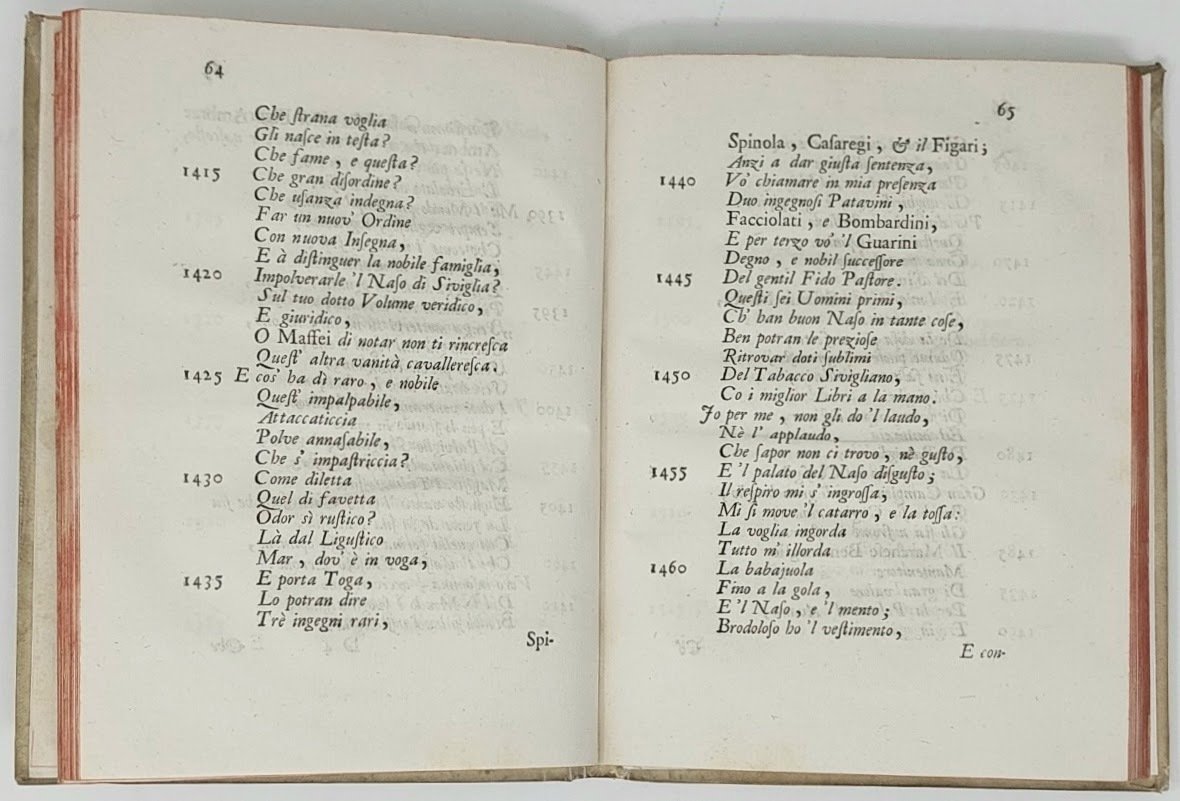 64
Che ſtrana voglia
Gli naſce in teſta?
Che fame, e queſta?
1415 Che gran diſordine?
Che uſanza indegna?
Far un nuov' Ordine
Con nuova Inſegna,
E à diſtinguer la nobile famiglia,
1420 Impolverarle 'l Naſo di Siviglia?
Sul tuo dotto Volume veridico,
E giuridico,
O Maffei di notar non ti rincreſca
Queſt' altra vanità cavallereſca.
1425 E cos' ha di raro, e nobile
Queſt' impalpabile,
Attaccaticcia
Polve annaſabile,
Che s' impaſtriccia?
1430 Come diletta
Quel di favetta
Odor sì ruſtico?
Là dal Liguſtico
Mar, dov' è in voga,
1435 E porta Toga,
Lo potran dire
Trè ingegni rari,
Spi-
65
Spinola, Caſaregi, & il Figari;
Anzi a dar giuſta ſentenza,
1440 Vo' chiamare in mia preſenza
Duo ingegnoſi Patavini,
Facciolati, e Bombardini,
E per terzo vo' 'l Guarini
Degno, e nobil ſucceſſore
1445 Del gentil Fido Paſtore.
Queſti ſei Uomini primi,
Ch' han buon Naſo in tante coſe,
Ben potran le prezioſe
Ritrovar doti ſublimi
1450 Del Tabacco Sivigliano,
Co i miglior Libri a la mano.
Jo per me, non gli do 'l laudo,
Nè l' applaudo,
Che ſapor non ci trovo, nè guſto,
1455 E 'l palato del Naſo diſguſto;
Il reſpiro mi s' ingroſſa,
Mi ſi move 'l catarro, e la toſſa.
La voglia ingorda
Tutto m' illorda
1460 La babajuola
Fino a la gola,
E 'l Naſo, e 'l mento;
Brodoloſo ho 'l veſtimento,
E con-